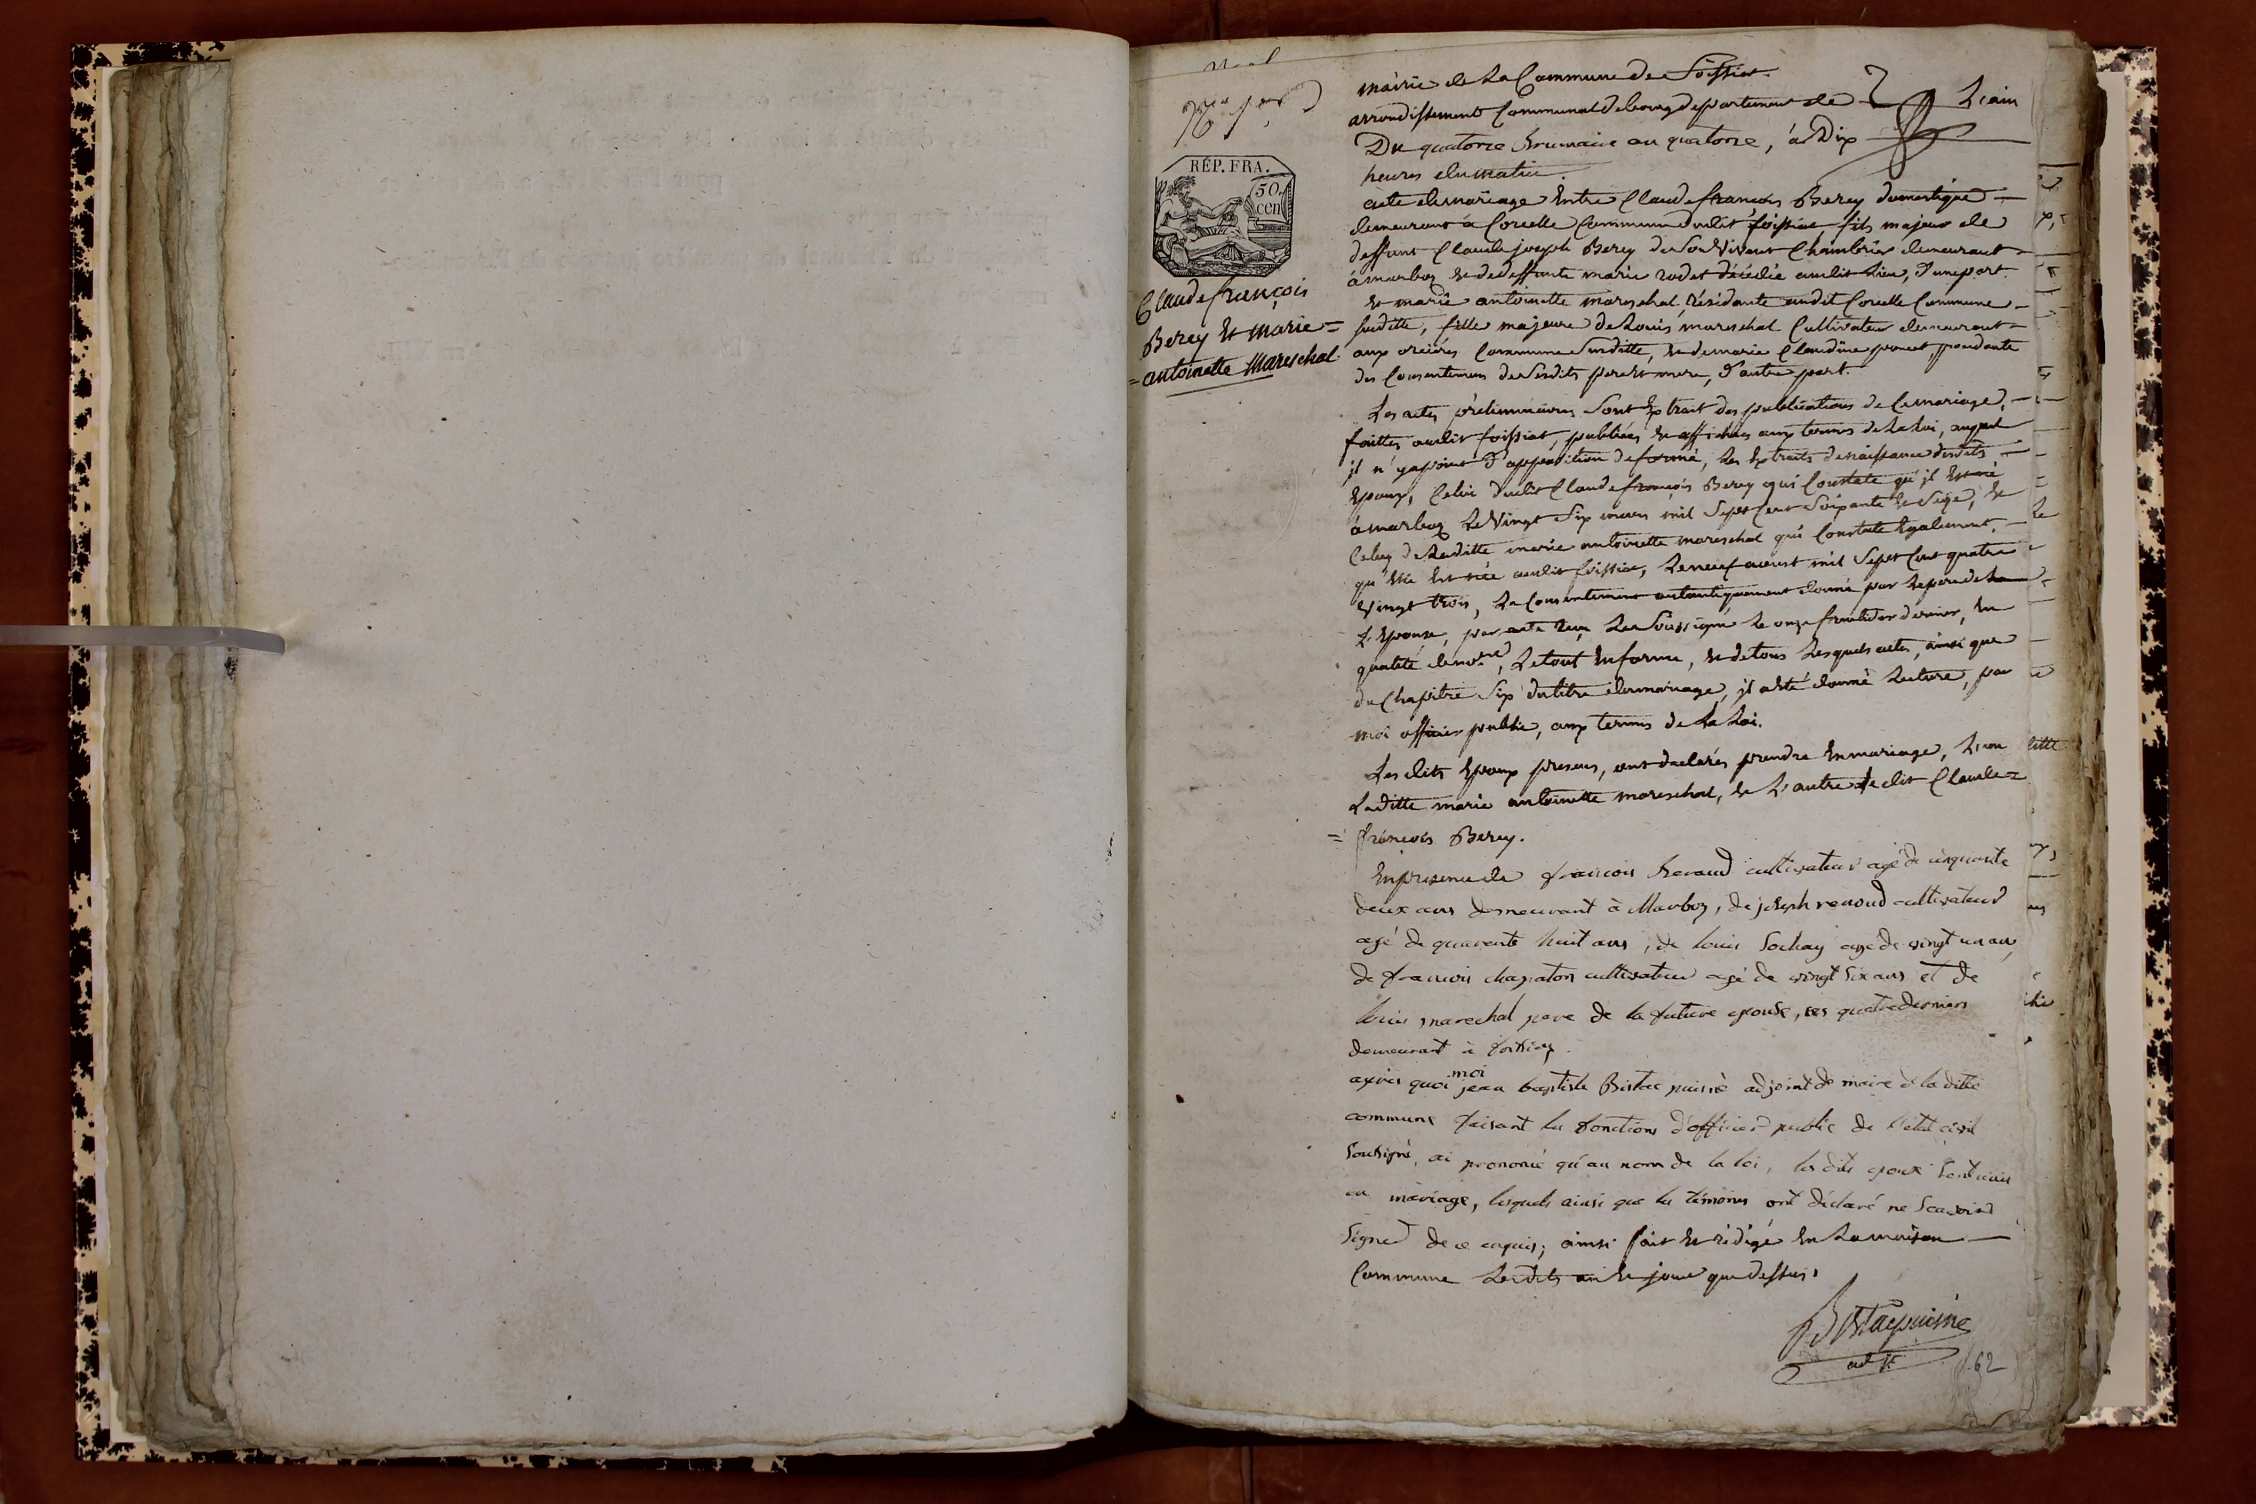 RÉP. FRA.
50.
cen
Claude françois
Berey et marie=
=antoinette Mareschal
mairie de La Commune de Foissiat.
arrondissement Communal de bourg departement de L'ain
Du quatorze brumaire an quatorze, à Dix
heures du matin.
acte de mariage Entre Claude françois Berey domestique
demeurant à Corcelle Commune dudit foissiat, fils majeur de
deffunt Claude joseph Berey de Son Vivant Chambrier demeurant
à marboz et de deffunte marie rodet décédée audit Lieu, d'une part.
Et marie antoinette mareschal, résidante audit Corcelle Commune
susditte, fille majeure de Louis mareschal Cultivateur demeurant
aux orcières Commune Susditte, et de marie Claudine poncet, procédante
des Consentemens de Sesdits pere et mere, d'autre part.
Les actes préliminaires Sont Extrait des publications de Ce mariage,
faittes audit foissiat, publiées et affichées aux termes de La Loi, auquel
il n'y a point d'opposition de formé, Les Extraits de naissance desdits
Epoux, Celui dudit Claude françois Berey qui Constate qu'il Est né
à marboz Le Vingt Six mars mil Sept Cent Soixante et Seize, et
Celuy de Laditte marie antoinette mareschal qui Constate Egalement
qu'Elle Est née audit foissiat, Le neuf aoust mil Sept Cent quatre
Vingt trois, Le Consentement autantiquement donné par Le pere de
L'Epouse, par acte reçu Le Soussigné Le onze fructidor dernier, En
qualité de notre, Le tout En forme, et de tous Lesquels actes, ainsi que
du Chapitre Six du titre du mariage, il a été donné Lecture, par
moi officier public, aux termes de La Loi.
Les dits Epoux presens, ont déclarés prendre En mariage, L'un
Laditte marie antoinette mareschal, et L'autre Ledit Claude=
=françois Berey.
En présence de francois Revaud cultivateur agé de cinquante
deux ans demeurant à Marboz, de joseph renoud cultivateur
agé de quarente huit ans, de louis Sochay agé de vingt un ans,
de francois chapaton cultivateur agé de vingt six ans et de
louis marechal pere de la future epouse, les quatre derniers
demeurant à foissiat.
après quoi moi jean baptiste Bistac puisné adjoint de maire de la ditte
commune faisant les fonctions d'officier public de l'etat civil
soussigné, ai prononcé qu'au nom de la loi, les dits epoux sont unis
en mariage, lesquels ainsi que les témoins ont déclaré ne scavoir
signer de ce enquis; ainsi fait et rédigé En La maison
Commune Lesdits an et jour que dessus.
Bistac puisné
adjt
62